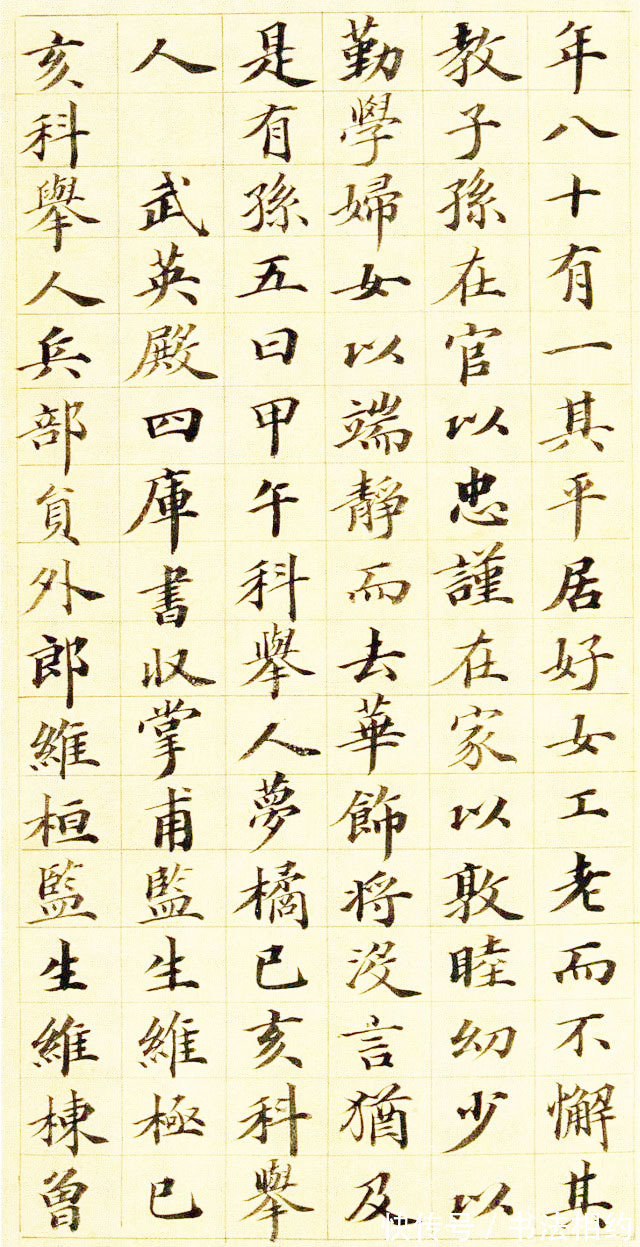 年八十有一其平居好女工老而不懈其
教子孫在官以忠謹在家以敦睦幼少以
勤學婦女以端靜而去華飾將沒言猶及
是有孫五曰甲午科舉人夢橘已亥科舉
人 武英殿四庫書収掌甫監生維極已
亥科舉人兵部負外郎維桓監生維棟曾
快传号/书法相约